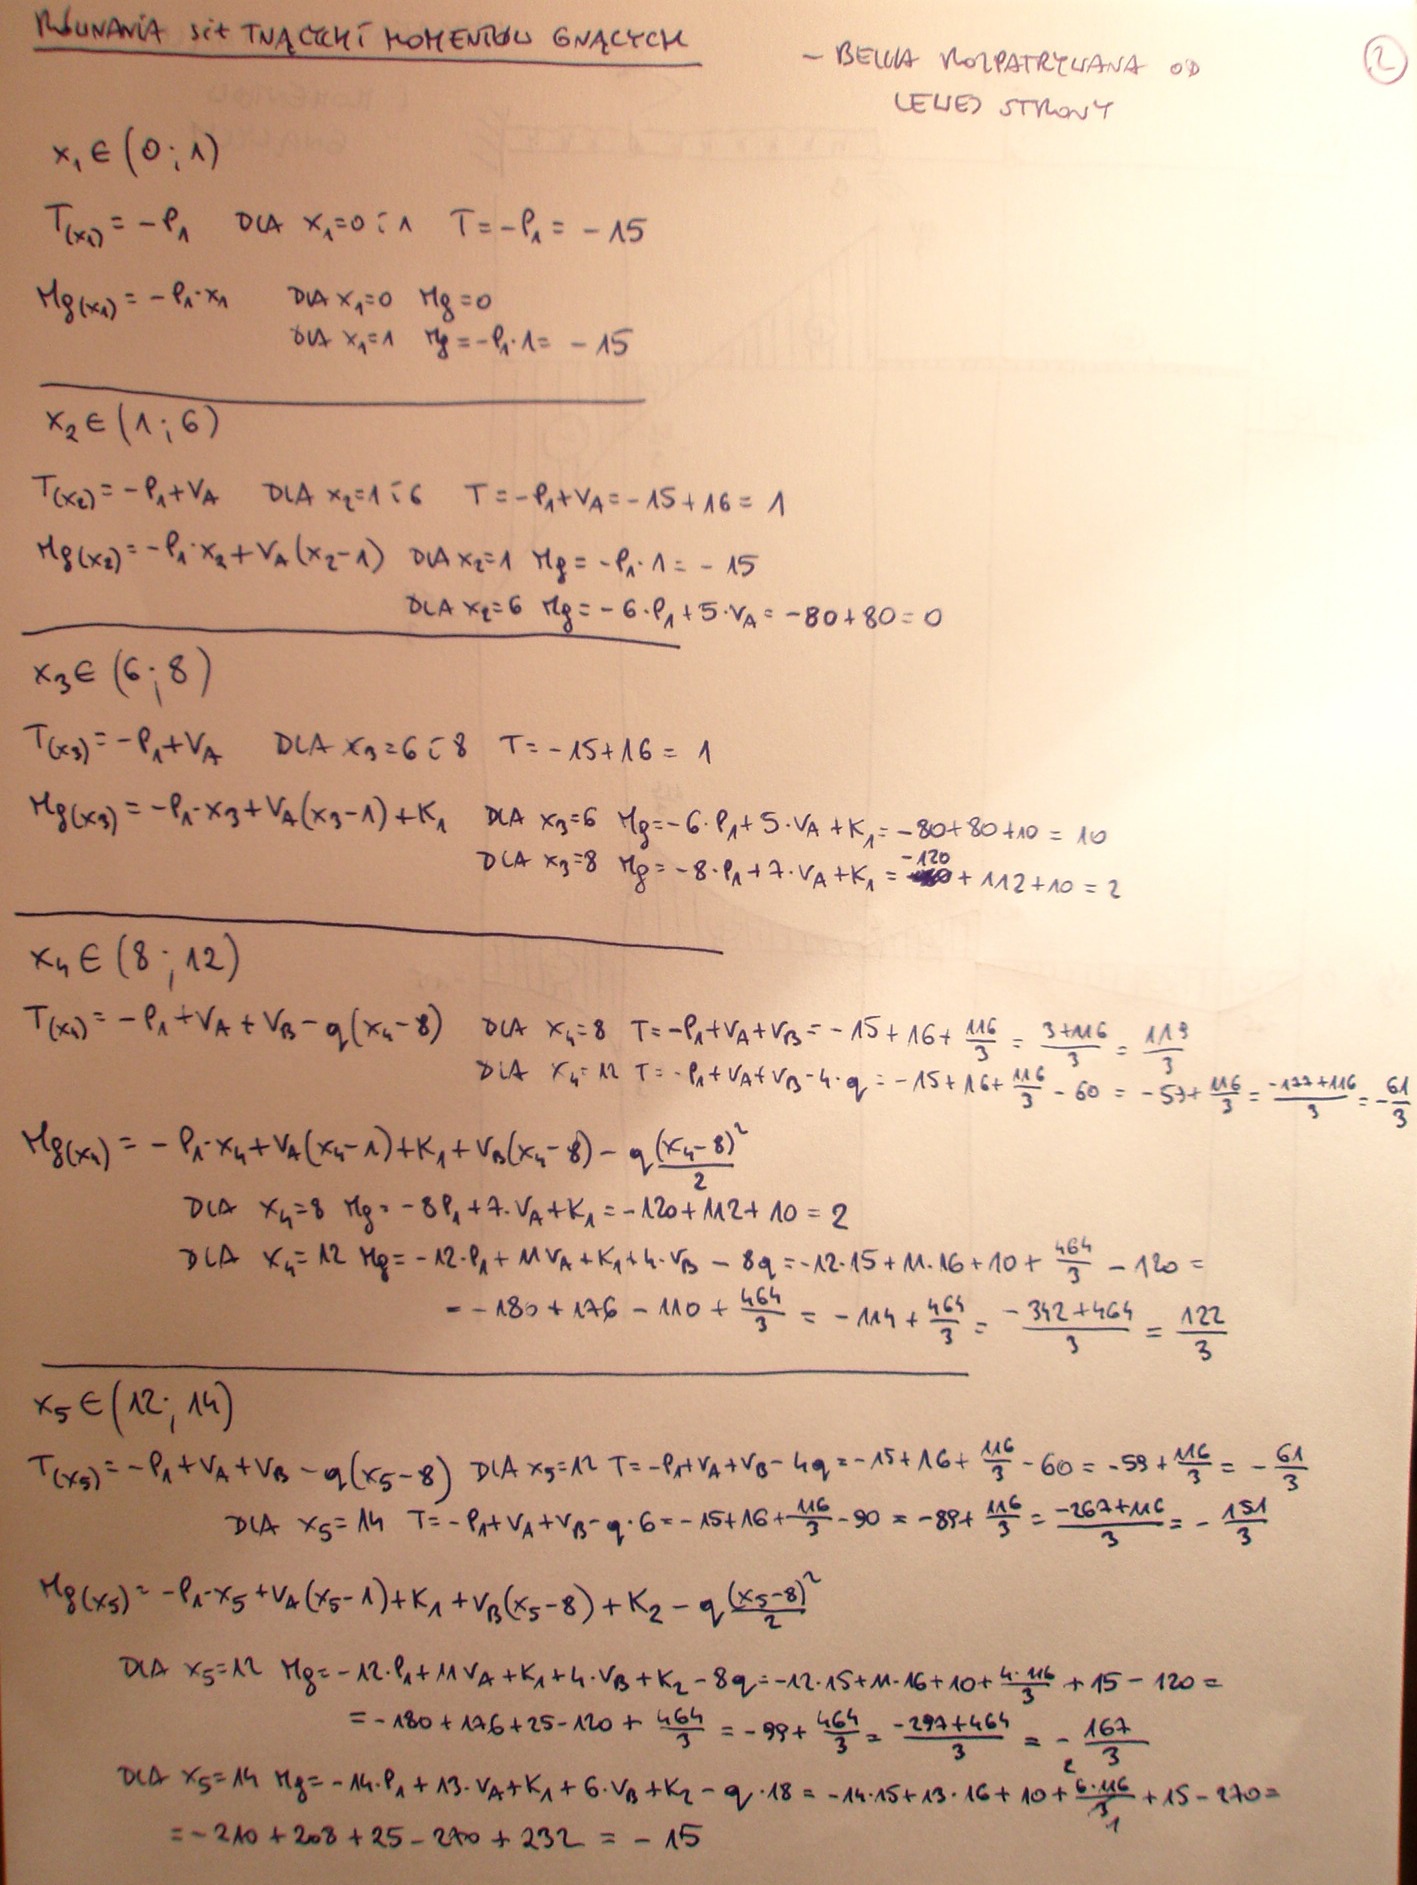 RÓWNANIA SIŁ TNĄCYCH I MOMENTÓW GNĄCYCH
- BELKA ROZPATRYWANA OD
LEWEJ STRONY
2
x₁ ∈ (0; 1)
T(x₁) = -P₁ DLA x₁=0 i 1 T = -P₁ = -15
Mg(x₁) = -P₁·x₁ DLA x₁=0 Mg=0
DLA x₁=1 Mg = -P₁·1 = -15
x₂ ∈ (1; 6)
T(x₂) = -P₁+VA DLA x₂=1 i 6 T = -P₁+VA = -15+16 = 1
Mg(x₂) = -P₁·x₂+VA(x₂-1) DLA x₂=1 Mg = -P₁·1 = -15
DLA x₂=6 Mg = -6·P₁+5·VA = -80+80 = 0
x₃ ∈ (6; 8)
T(x₃) = -P₁+VA DLA x₃=6 i 8 T = -15+16 = 1
Mg(x₃) = -P₁·x₃+VA(x₃-1)+K₁ DLA x₃=6 Mg = -6·P₁+5·VA+K₁ = -80+80+10 = 10
DLA x₃=8 Mg = -8·P₁+7·VA+K₁ = -120+112+10 = 2
x₄ ∈ (8; 12)
T(x₄) = -P₁+VA+VB-q(x₄-8) DLA x₄=8 T = -P₁+VA+VB = -15+16+116/3 = (3+116)/3 = 119/3
DLA x₄=12 T = -P₁+VA+VB-4·q = -15+16+116/3-60 = -59+116/3 = (-177+116)/3 = -61/3
Mg(x₄) = -P₁·x₄+VA(x₄-1)+K₁+VB(x₄-8)-q(x₄-8)²/2
DLA x₄=8 Mg = -8P₁+7·VA+K₁ = -120+112+10 = 2
DLA x₄=12 Mg = -12·P₁+11VA+K₁+4·VB-8q = -12·15+11·16+10+464/3-120 =
= -180+176-110+464/3 = -114+464/3 = (-342+464)/3 = 122/3
x₅ ∈ (12; 14)
T(x₅) = -P₁+VA+VB-q(x₅-8) DLA x₅=12 T = -P₁+VA+VB-4q = -15+16+116/3-60 = -59+116/3 = -61/3
DLA x₅=14 T = -P₁+VA+VB-q·6 = -15+16+116/3-90 = -89+116/3 = (-267+116)/3 = -151/3
Mg(x₅) = -P₁·x₅+VA(x₅-1)+K₁+VB(x₅-8)+K₂-q(x₅-8)²/2
DLA x₅=12 Mg = -12·P₁+11VA+K₁+4·VB+K₂-8q = -12·15+11·16+10+4·116/3+15-120 =
= -180+176+25-120+464/3 = -99+464/3 = (-297+464)/3 = -167/3
DLA x₅=14 Mg = -14·P₁+13·VA+K₁+6·VB+K₂-q·18 = -14·15+13·16+10+6·116/3+15-270 =
= -210+208+25-270+232 = -15